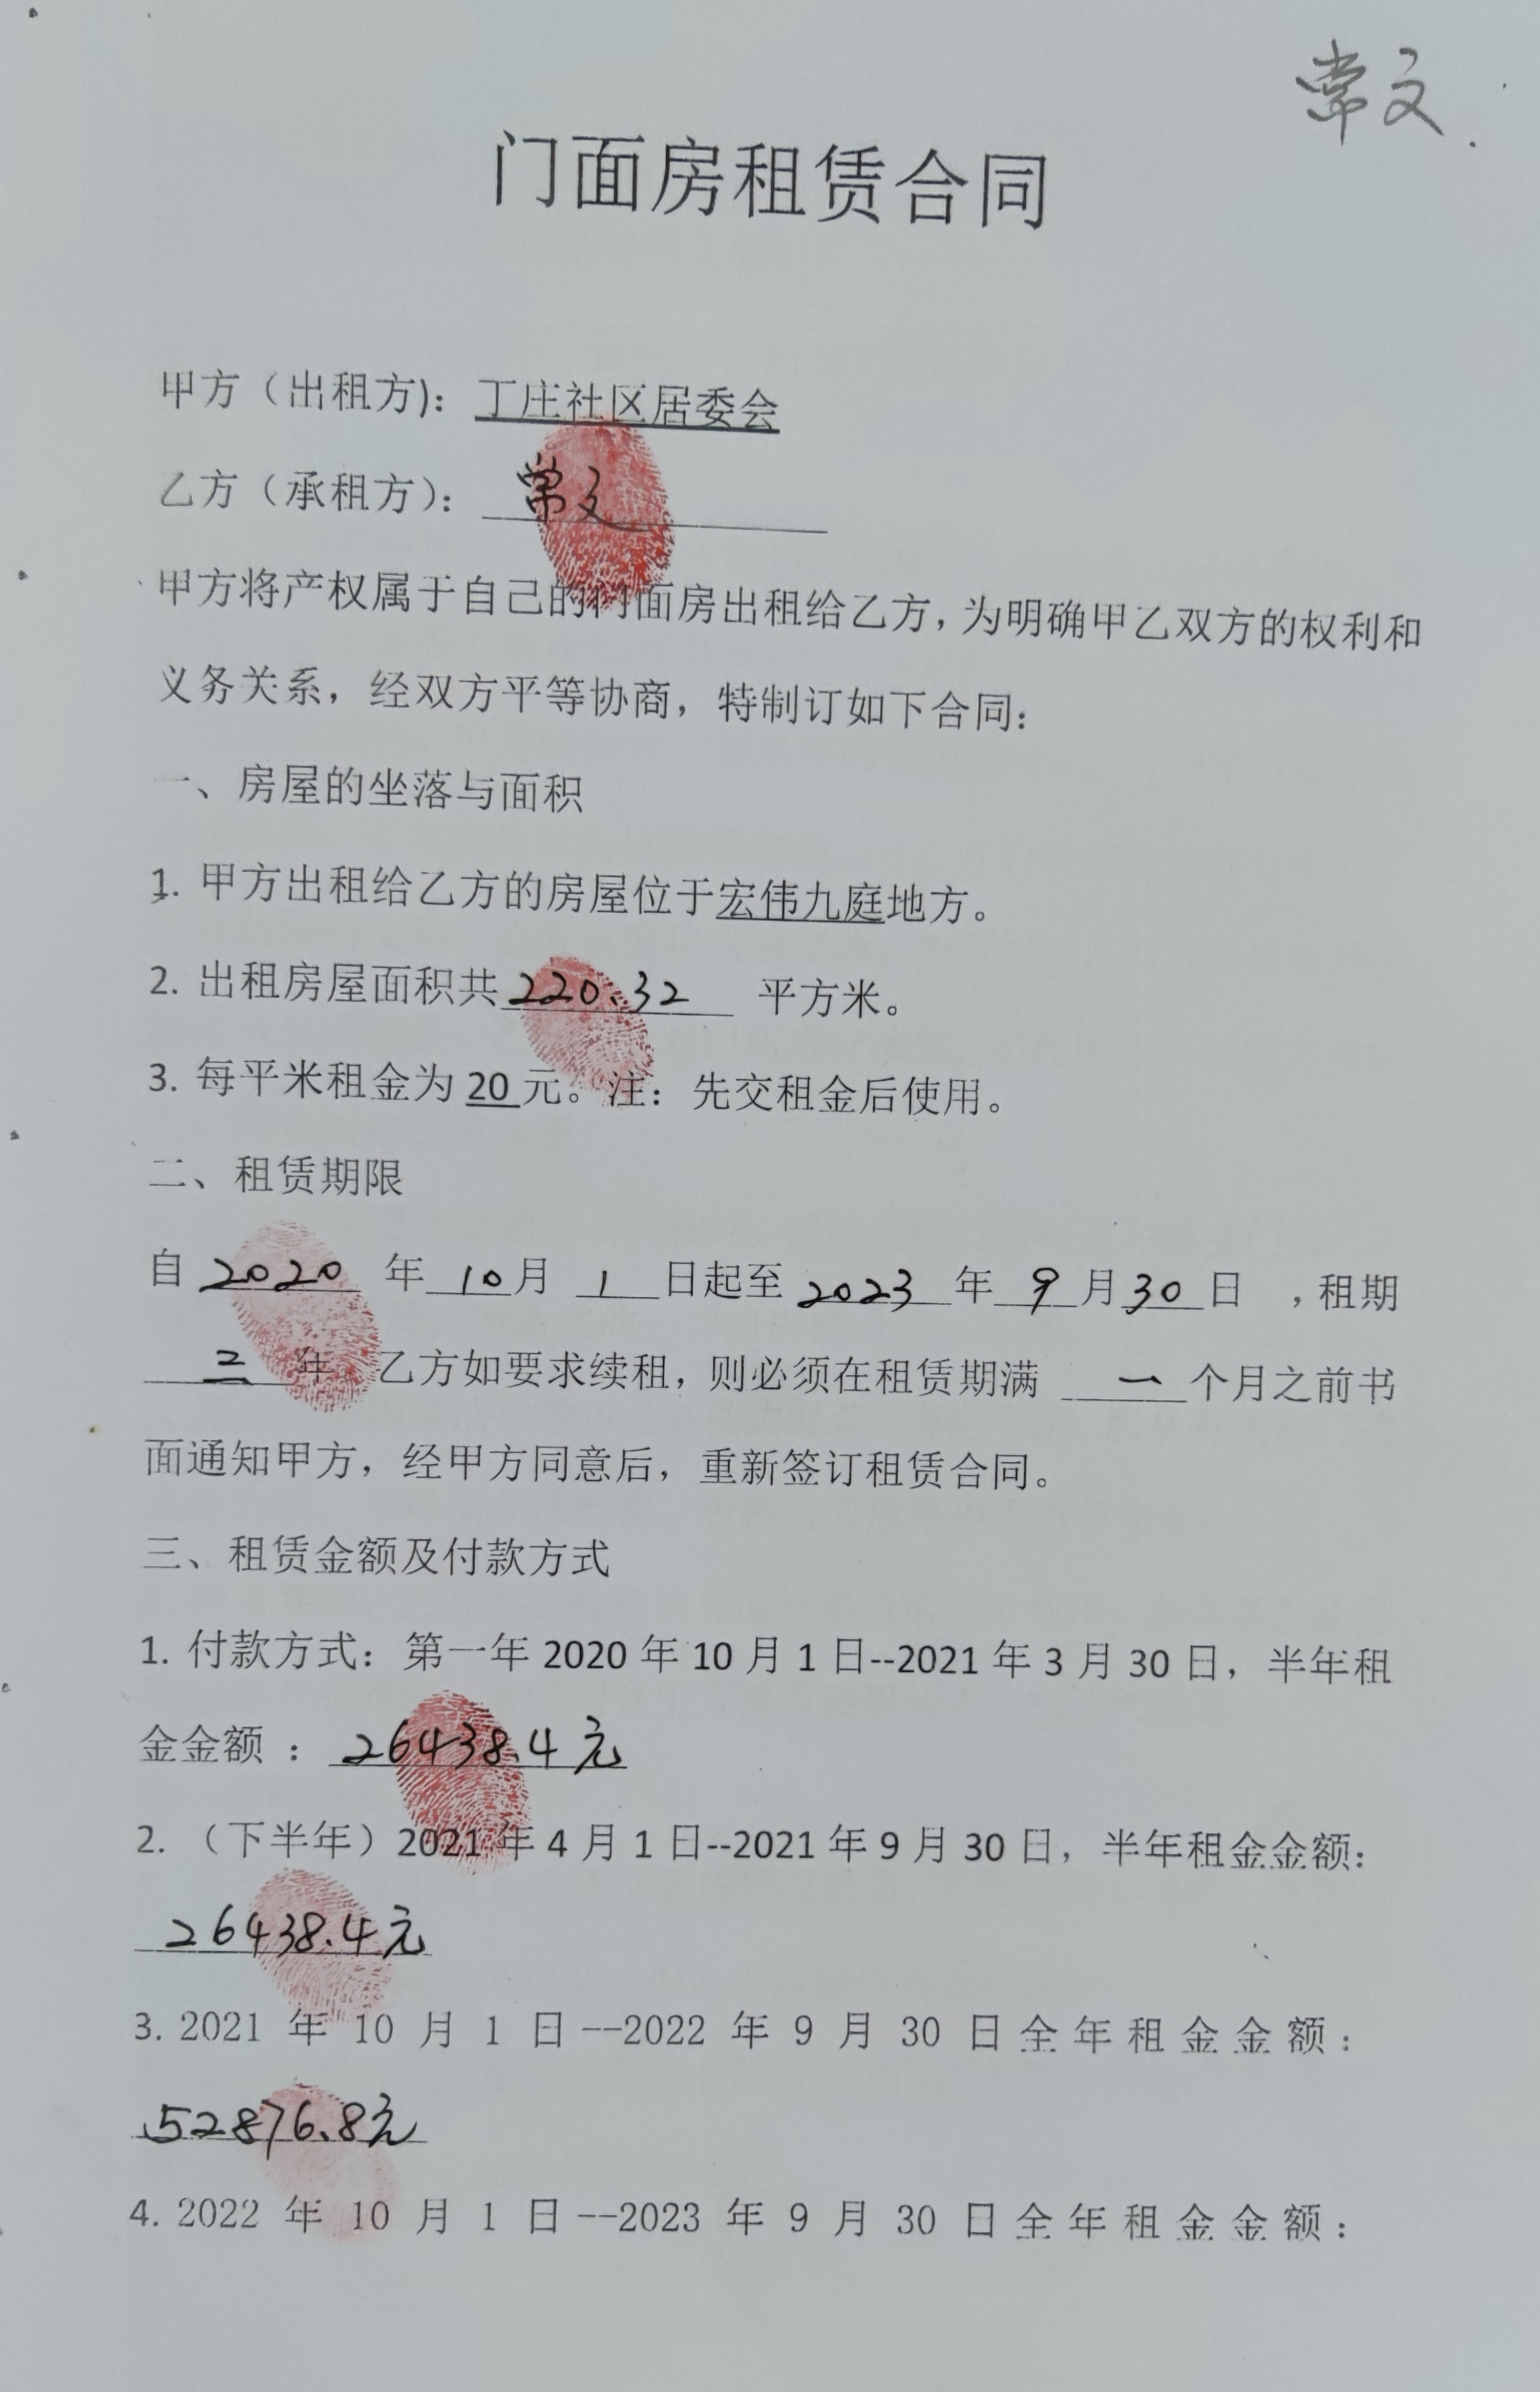 常文
门面房租赁合同
甲方（出租方)：丁庄社区居委会
乙方（承租方）：常文
甲方将产权属于自己的门面房出租给乙方，为明确甲乙双方的权利和
义务关系，经双方平等协商，特制订如下合同：
一、房屋的坐落与面积
1. 甲方出租给乙方的房屋位于宏伟九庭地方。
2. 出租房屋面积共 220.32 平方米。
3. 每平米租金为 20 元。注：先交租金后使用。
二、租赁期限
自 2020 年 10 月 1 日起至 2023 年 9 月 30 日 ，租期
三 年。乙方如要求续租，则必须在租赁期满 一 个月之前书
面通知甲方，经甲方同意后，重新签订租赁合同。
三、租赁金额及付款方式
1. 付款方式：第一年 2020 年 10 月 1 日--2021 年 3 月 30 日，半年租
金金额 ： 26438.4 元
2. （下半年）2021 年 4 月 1 日--2021 年 9 月 30 日，半年租金金额：
26438.4 元
3. 2021 年 10 月 1 日--2022 年 9 月 30 日全年租金金额：
52876.8 元
4. 2022 年 10 月 1 日--2023 年 9 月 30 日全年租金金额：